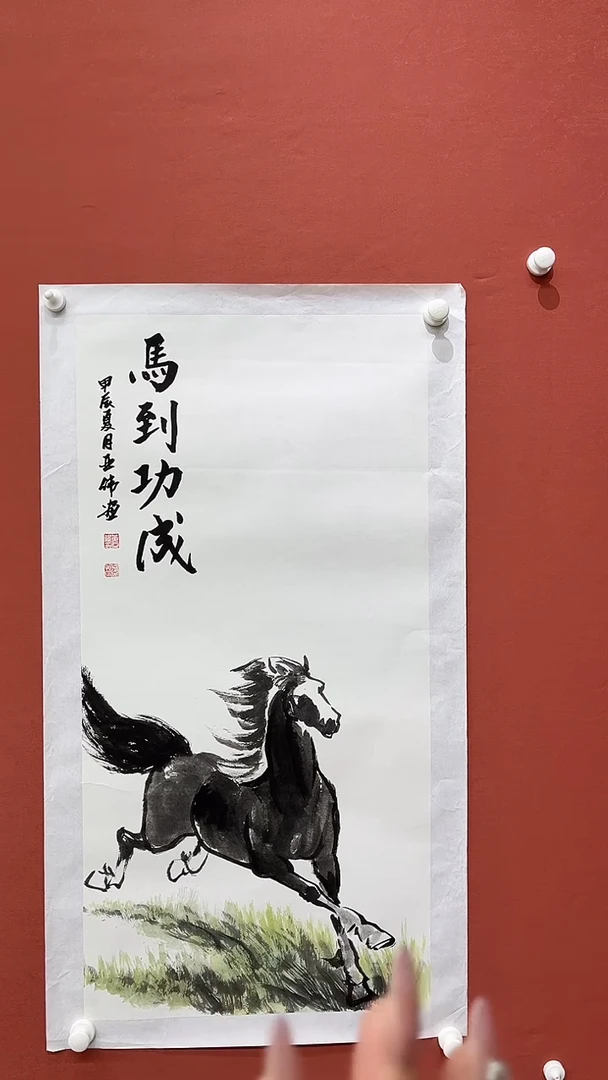 馬到功成
甲辰夏月亚伟画